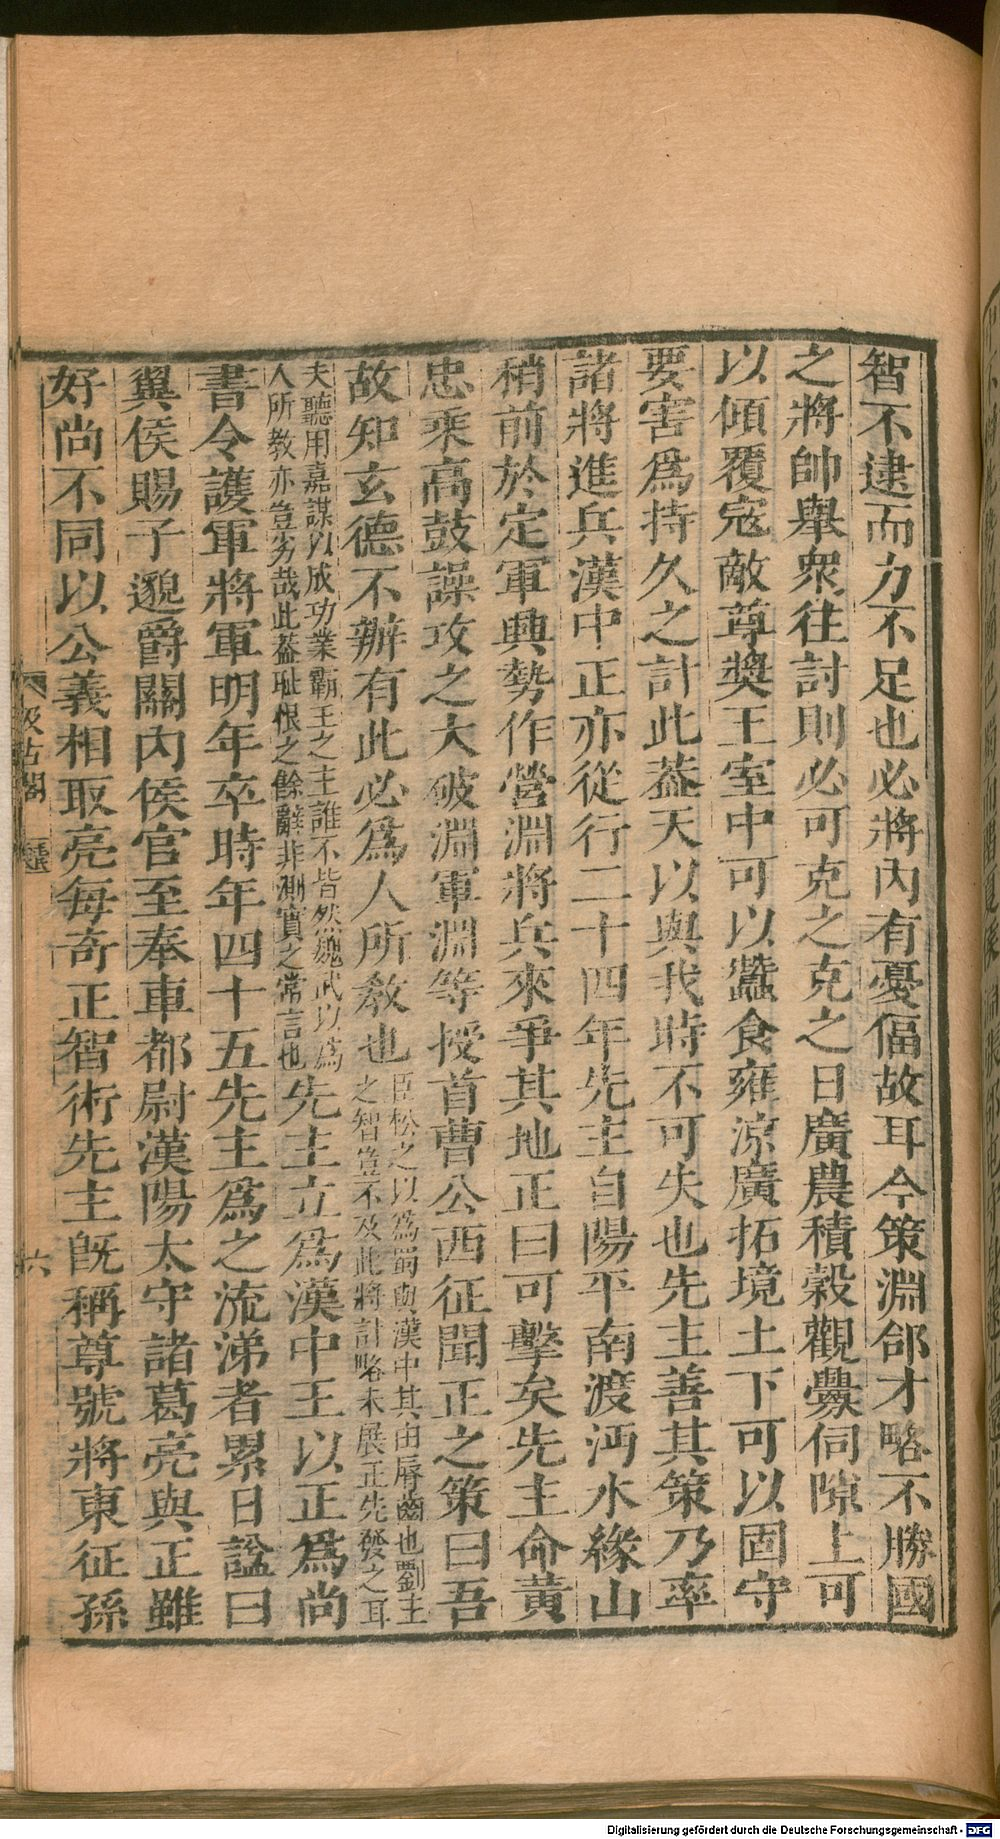 智不逮而力不足也必將內有憂偪故耳今策淵郃才略不勝國
之將帥舉衆往討則必可克之克之日廣農積穀觀釁伺隙上可
以傾覆寇敵尊獎王室中可以蠶食雍涼廣拓境土下可以固守
要害爲持久之計此葢天以與我時不可失也先主善其策乃率
諸將進兵漢中正亦從行二十四年先主自陽平南渡沔水緣山
稍前於定軍興勢作營淵將兵來爭其地正曰可擊矣先主命黃
忠乘高鼓譟攻之大破淵軍淵等授首曹公西征聞正之策曰吾
故知玄德不辦有此必爲人所敎也
臣松之以爲蜀與漢中其由脣齒也劉主
之智豈不及此將計略未展正先發之耳
夫聽用嘉謀以成功業霸王之主誰不皆然魏武以爲
人所教亦豈劣哉此葢耻恨之餘辭非測實之常言也
先主立爲漢中王以正爲尚
書令護軍將軍明年卒時年四十五先主爲之流涕者累日諡曰
翼侯賜子邈爵關內侯官至奉車都尉漢陽太守諸葛亮與正雖
好尚不同以公義相取亮每奇正智術先主旣稱尊號將東征孫
汲古閣
六
Digitalisierung gefördert durch die Deutsche Forschungsgemeinschaft - DFG